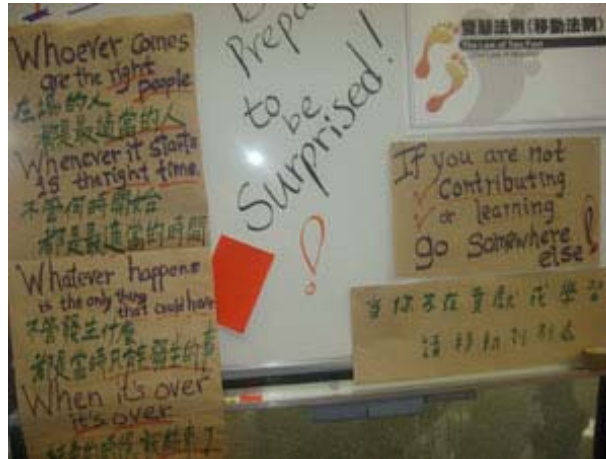 Whoever Comes
are the right
people
在場的人
都是最適當的人
Whenever it starts
is the right time.
不管何時開始
都是最適當的時間
Whatever happens
is the only thing
that could have
不管發生什麼
都是當時只能發生的事
When it's over
it's over
結束的時候就結束了
Prepa
to
be
Surprised!
雙腳法則(移動法則)
The Law of Two Feet
If you are not
contributing
or learning
go Somewhere
else!
當你不在貢獻或學習
請移動到別處